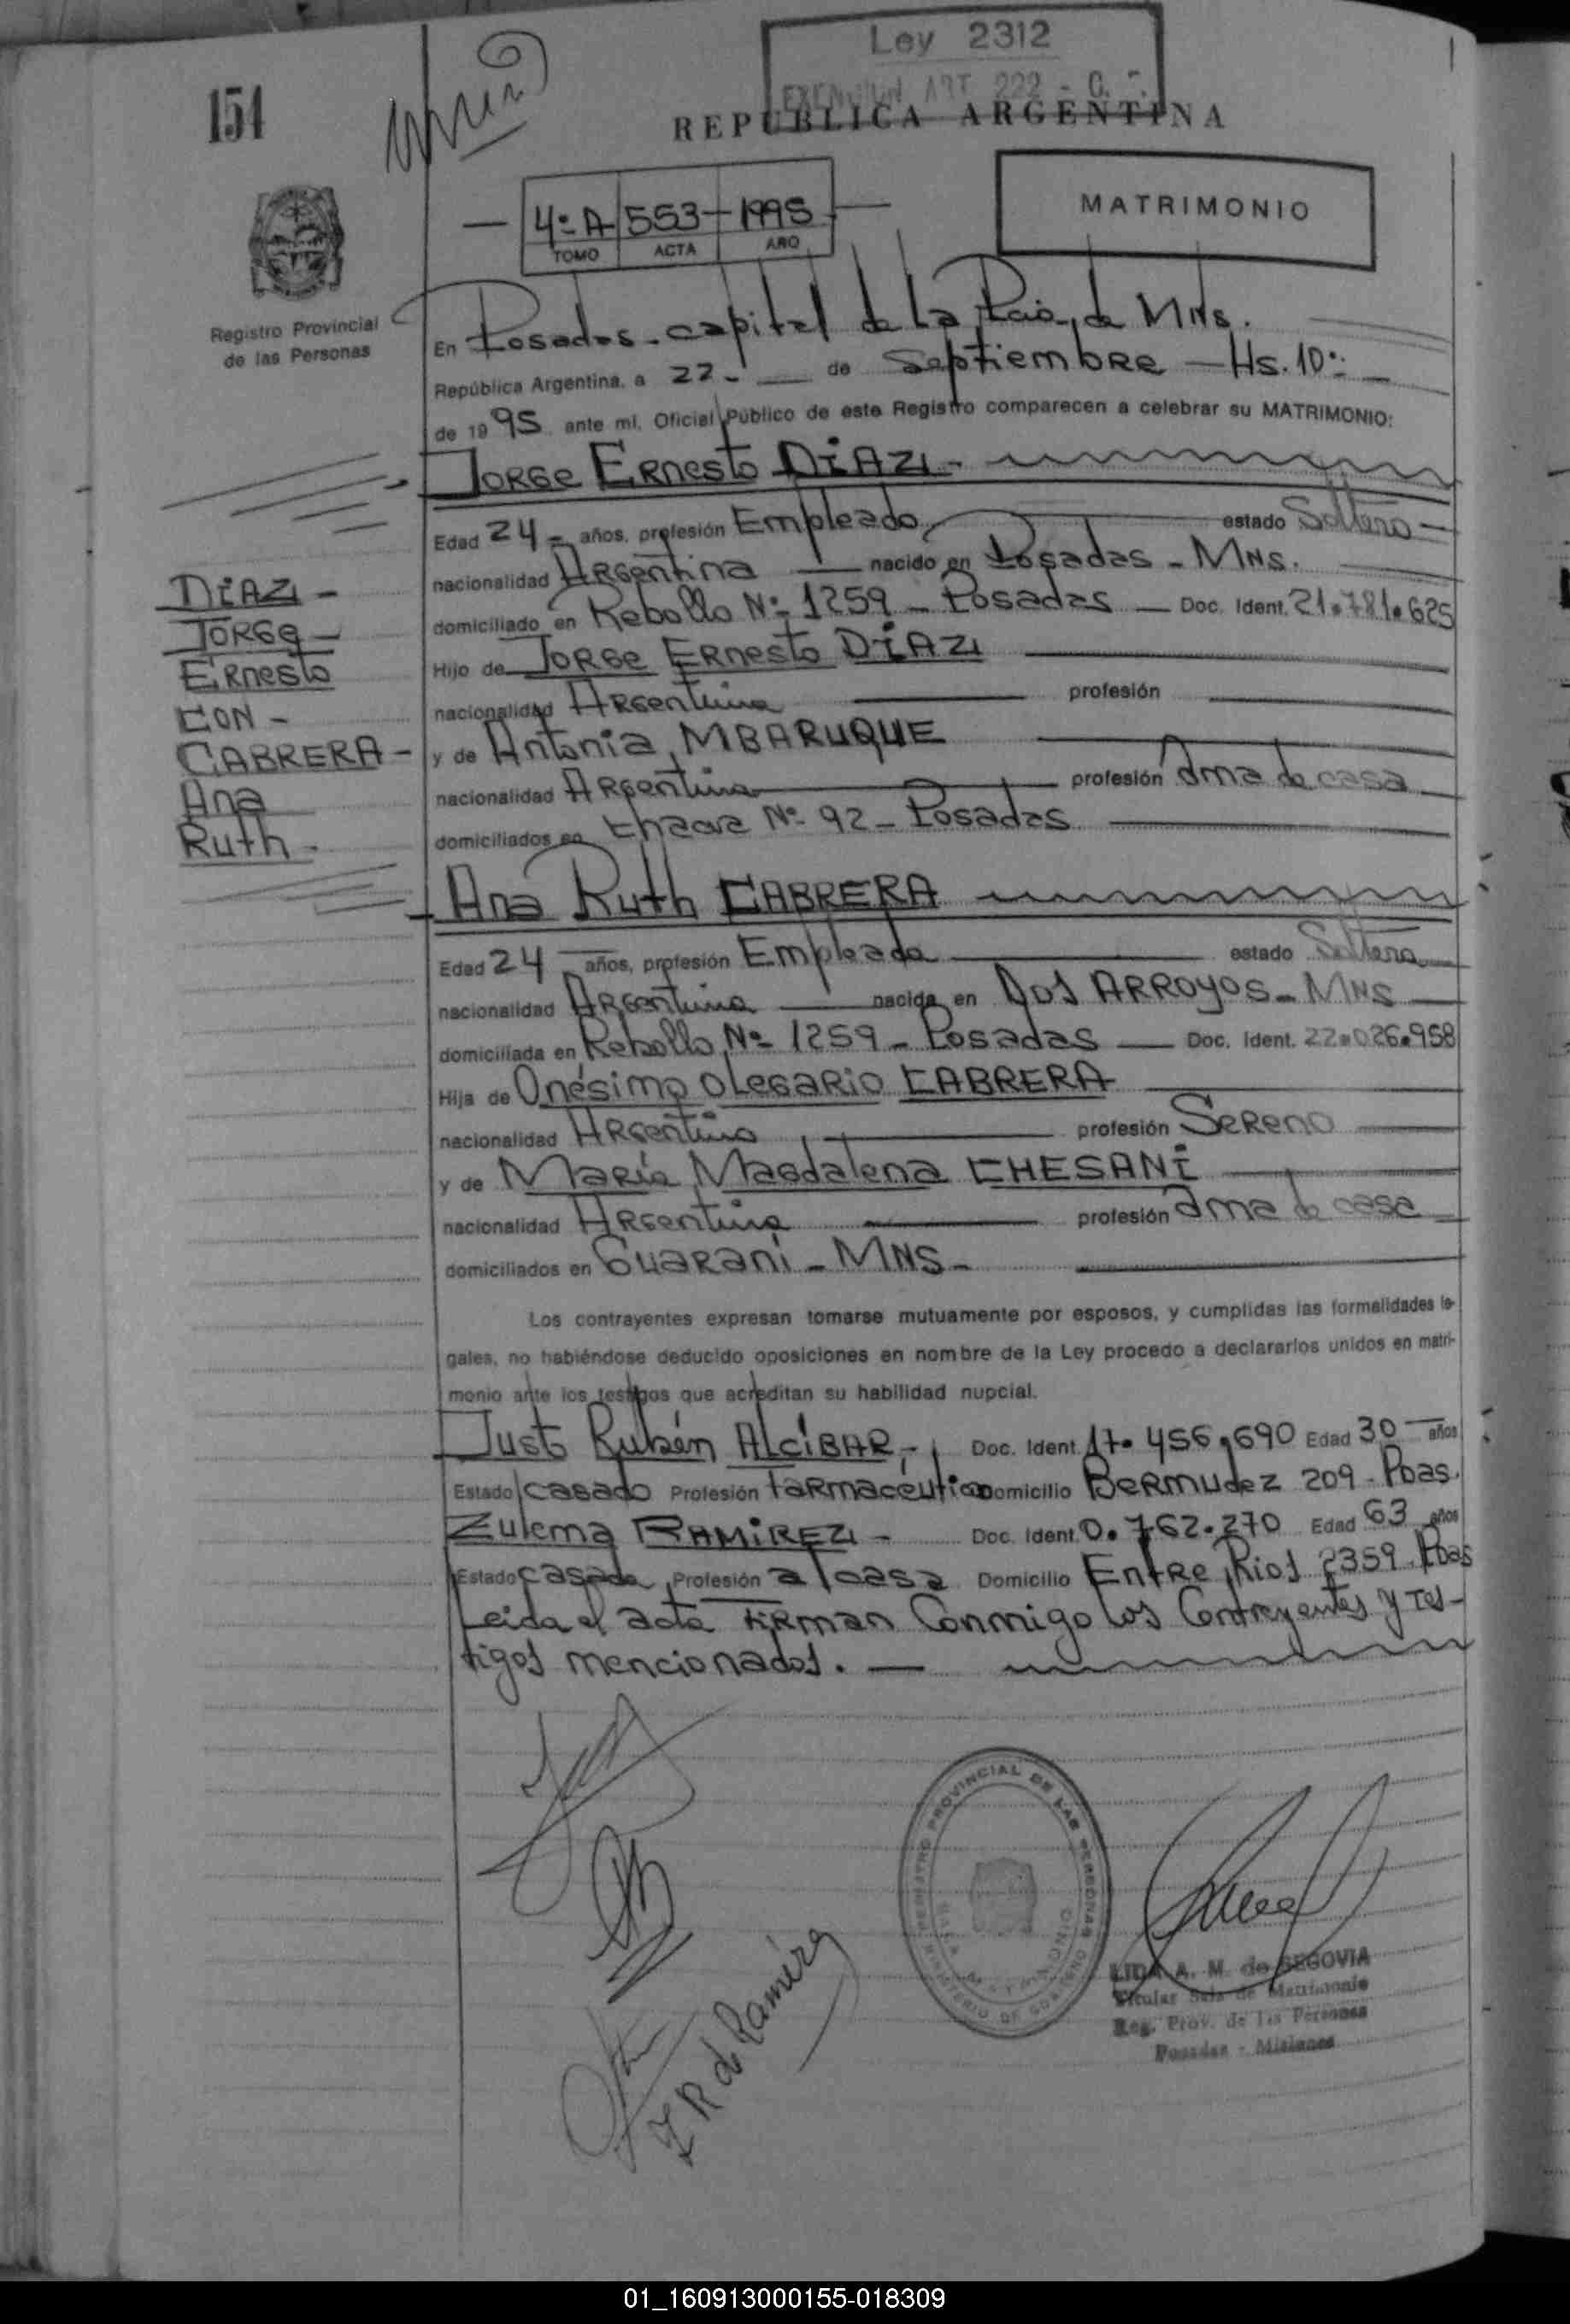 Ley 2312
EXENCION ART 222 - C. F.
154
REPUBLICA ARGENTINA
MATRIMONIO
4º A 553 - 1995
TOMO ACTA AÑO
Registro Provincial
de las Personas
En Posadas - capital de la Pcia, de Mns.
República Argentina, a 22 - de Septiembre - Hs. 10:
de 1995 ante mi, Oficial Público de este Registro comparecen a celebrar su MATRIMONIO:
Jorge Ernesto DiAZ -
Edad 24 - años, profesión Empleado estado Soltero
nacionalidad Argentina nacido en Posadas - Mns.
domiciliado en Rebollo Nº 1259 - Posadas - Doc. Ident. 21.781.625
Hijo de Jorge Ernesto DiAZ
nacionalidad Argentina profesión
y de Antonia MBARUQUE
nacionalidad Argentina profesión Ama de casa
domiciliados en Nº 92 - Posadas
DiAZ -
Jorge -
Ernesto
CON -
CABRERA -
Ana
Ruth -
Ana Ruth CABRERA
Edad 24 años, profesión Empleada estado Soltera
nacionalidad Argentina nacida en Dos Arroyos - Mns
domiciliada en Rebollo Nº 1259 - Posadas - Doc. Ident. 22.026.958
Hija de Onésimo Olegario CABRERA
nacionalidad Argentina profesión Sereno
y de María Magdalena CHESANi
nacionalidad Argentina profesión Ama de casa
domiciliados en Guaraní - MNS -
Los contrayentes expresan tomarse mutuamente por esposos, y cumplidas las formalidades le-
gales, no habiéndose deducido oposiciones en nombre de la Ley procedo a declararlos unidos en matri-
monio ante los testigos que acreditan su habilidad nupcial.
Justo Rubén ALCiBAR, - Doc. Ident. 17.456.690 Edad 30 años
Estado casado Profesión farmacéutico Domicilio Bermudez 209 - Pdas.
Zulema RAMiREZ - Doc. Ident. 0.762.270 Edad 63 años
Estado casada Profesión a/casa Domicilio Entre Rios 2359 - Pdas
Leida el acta firman Conmigo los Contrayentes y tes-
tigos mencionados. -
Z R de Ramírez
REGISTRO PROVINCIAL DE LAS PERSONAS
MINISTERIO DE GOBIERNO
SALA MATRIMONIO
LIDA A. M. de SEGOVIA
Titular Sala de Matrimonio
Reg. Prov. de las Personas
Posadas - Misiones
01_160913000155-018309